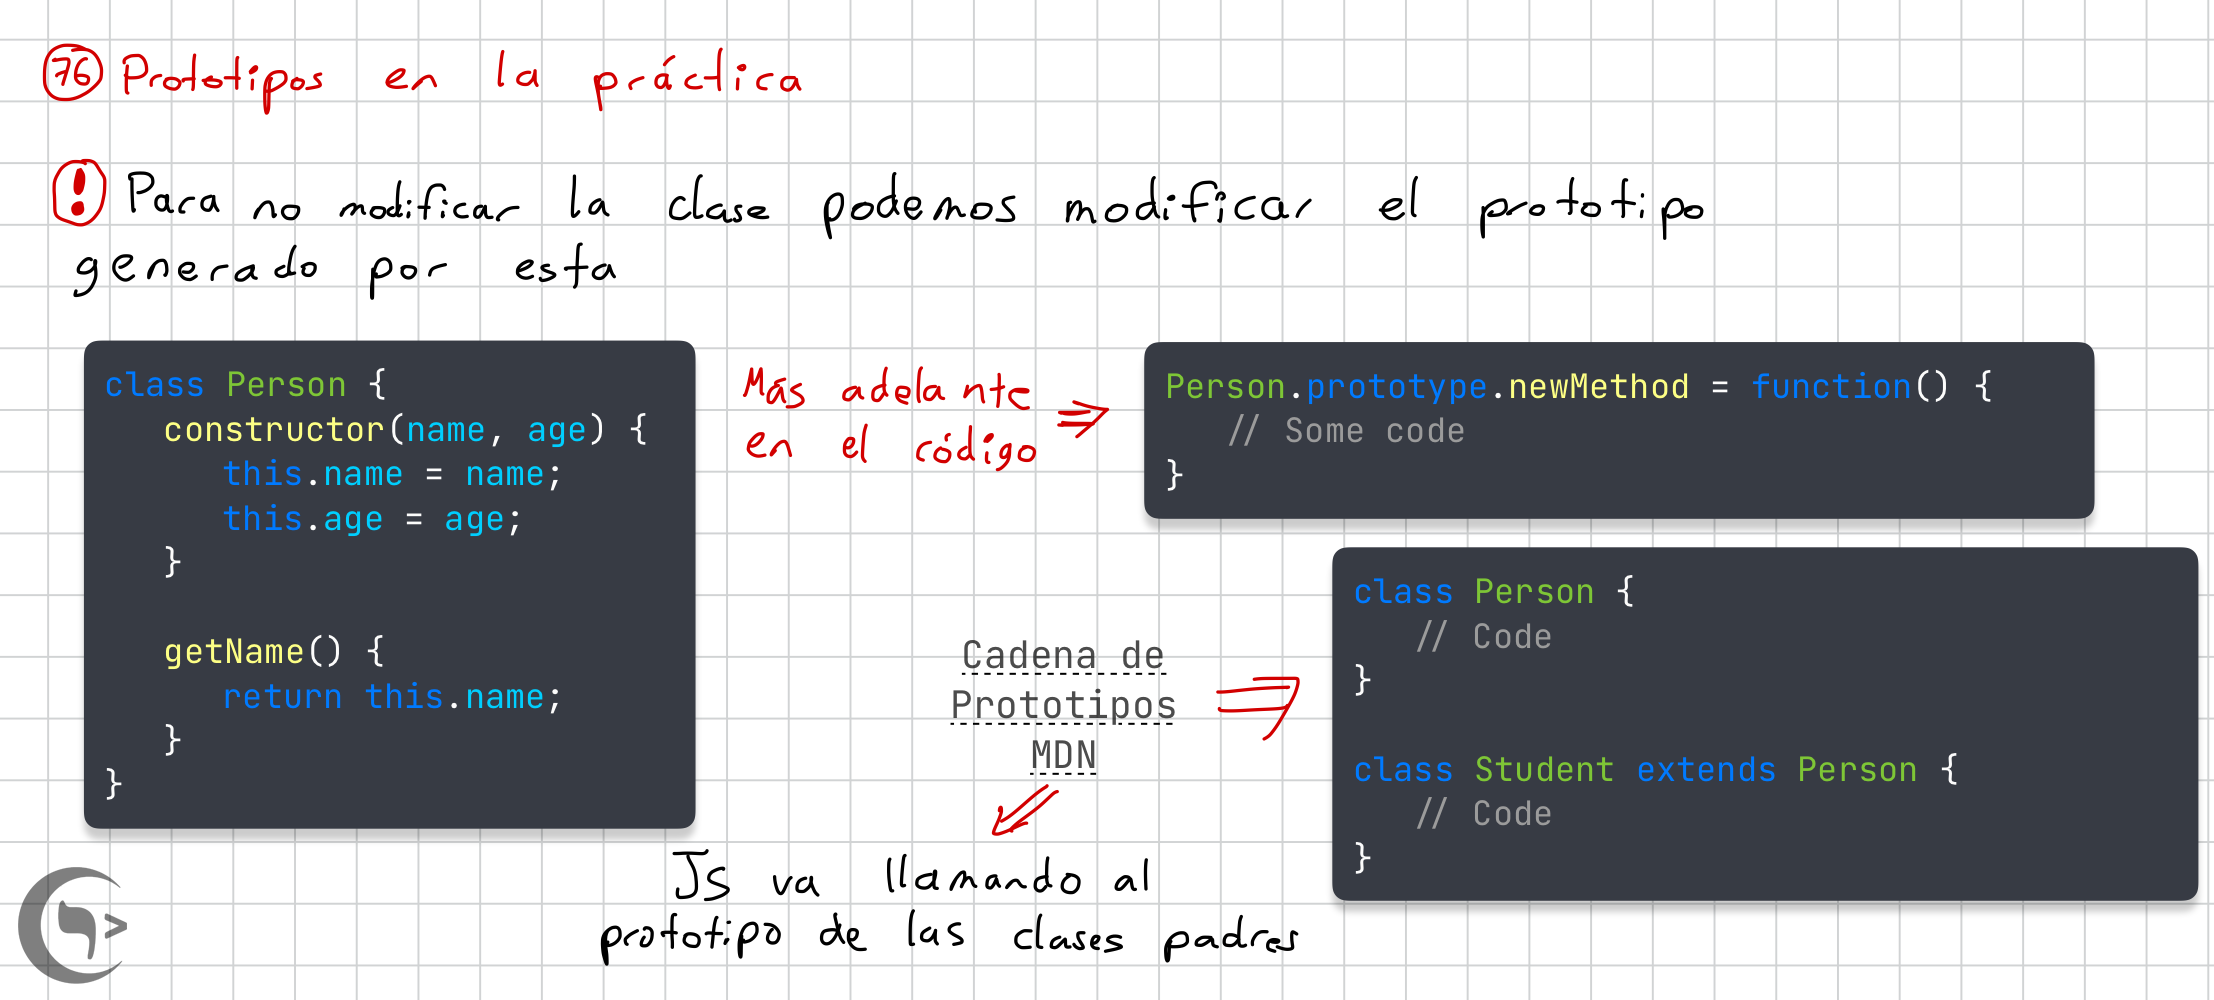 76 Prototipos en la práctica
! Para no modificar la clase podemos modificar el prototipo
generado por esta
class Person {
constructor(name, age) {
this.name = name;
this.age = age;
}
getName() {
return this.name;
}
}
Más adelante
en el código
Person.prototype.newMethod = function() {
// Some code
}
Cadena de
Prototipos
MDN
class Person {
// Code
}
class Student extends Person {
// Code
}
JS va llamando al
prototipo de las clases padres